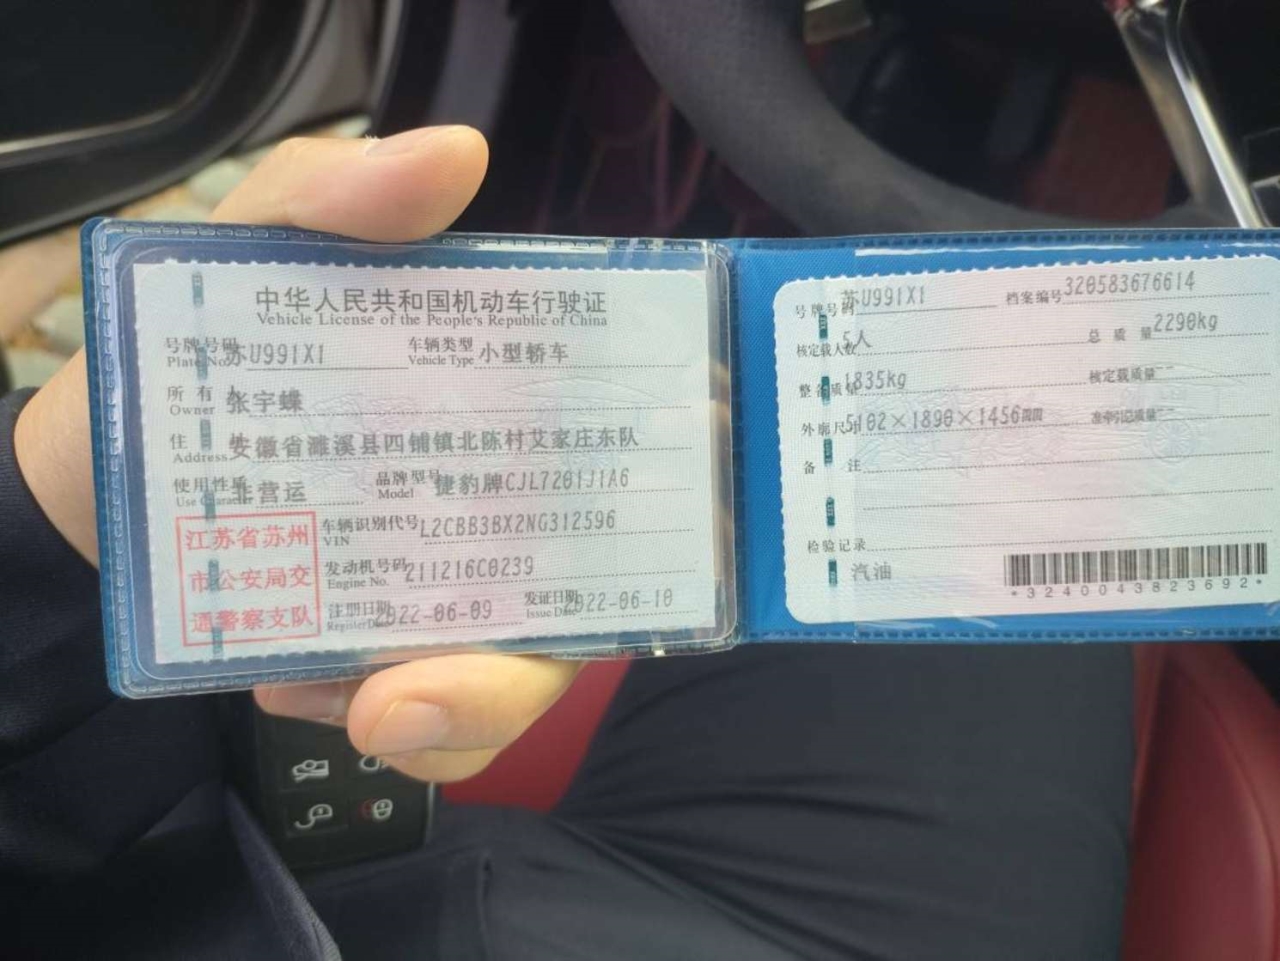 中华人民共和国机动车行驶证
Vehicle License of the People's Republic of China
号牌号码 苏U991X1 车辆类型 小型轿车
Plate No. Vehicle Type
所有人 张宇蝶
Owner
住址 安徽省濉溪县四铺镇北陈村艾家庄东队
Address
使用性质 非营运 品牌型号 捷豹牌CJL7201J1A6
Use Character Model
江苏省苏州
市公安局交
通警察支队
车辆识别代号 L2CBB3BX2NG312596
VIN
发动机号码 211216C0239
Engine No.
注册日期 2022-06-09 发证日期 2022-06-10
Register Date Issue Date
号牌号码 苏U991X1 档案编号 320583676614
核定载人数 5人 总质量 2290kg
整备质量 1835kg 核定载质量 --
外廓尺寸 5102×1890×1456mm 准牵引总质量 --
备注
检验记录
汽油
*3240043823692*